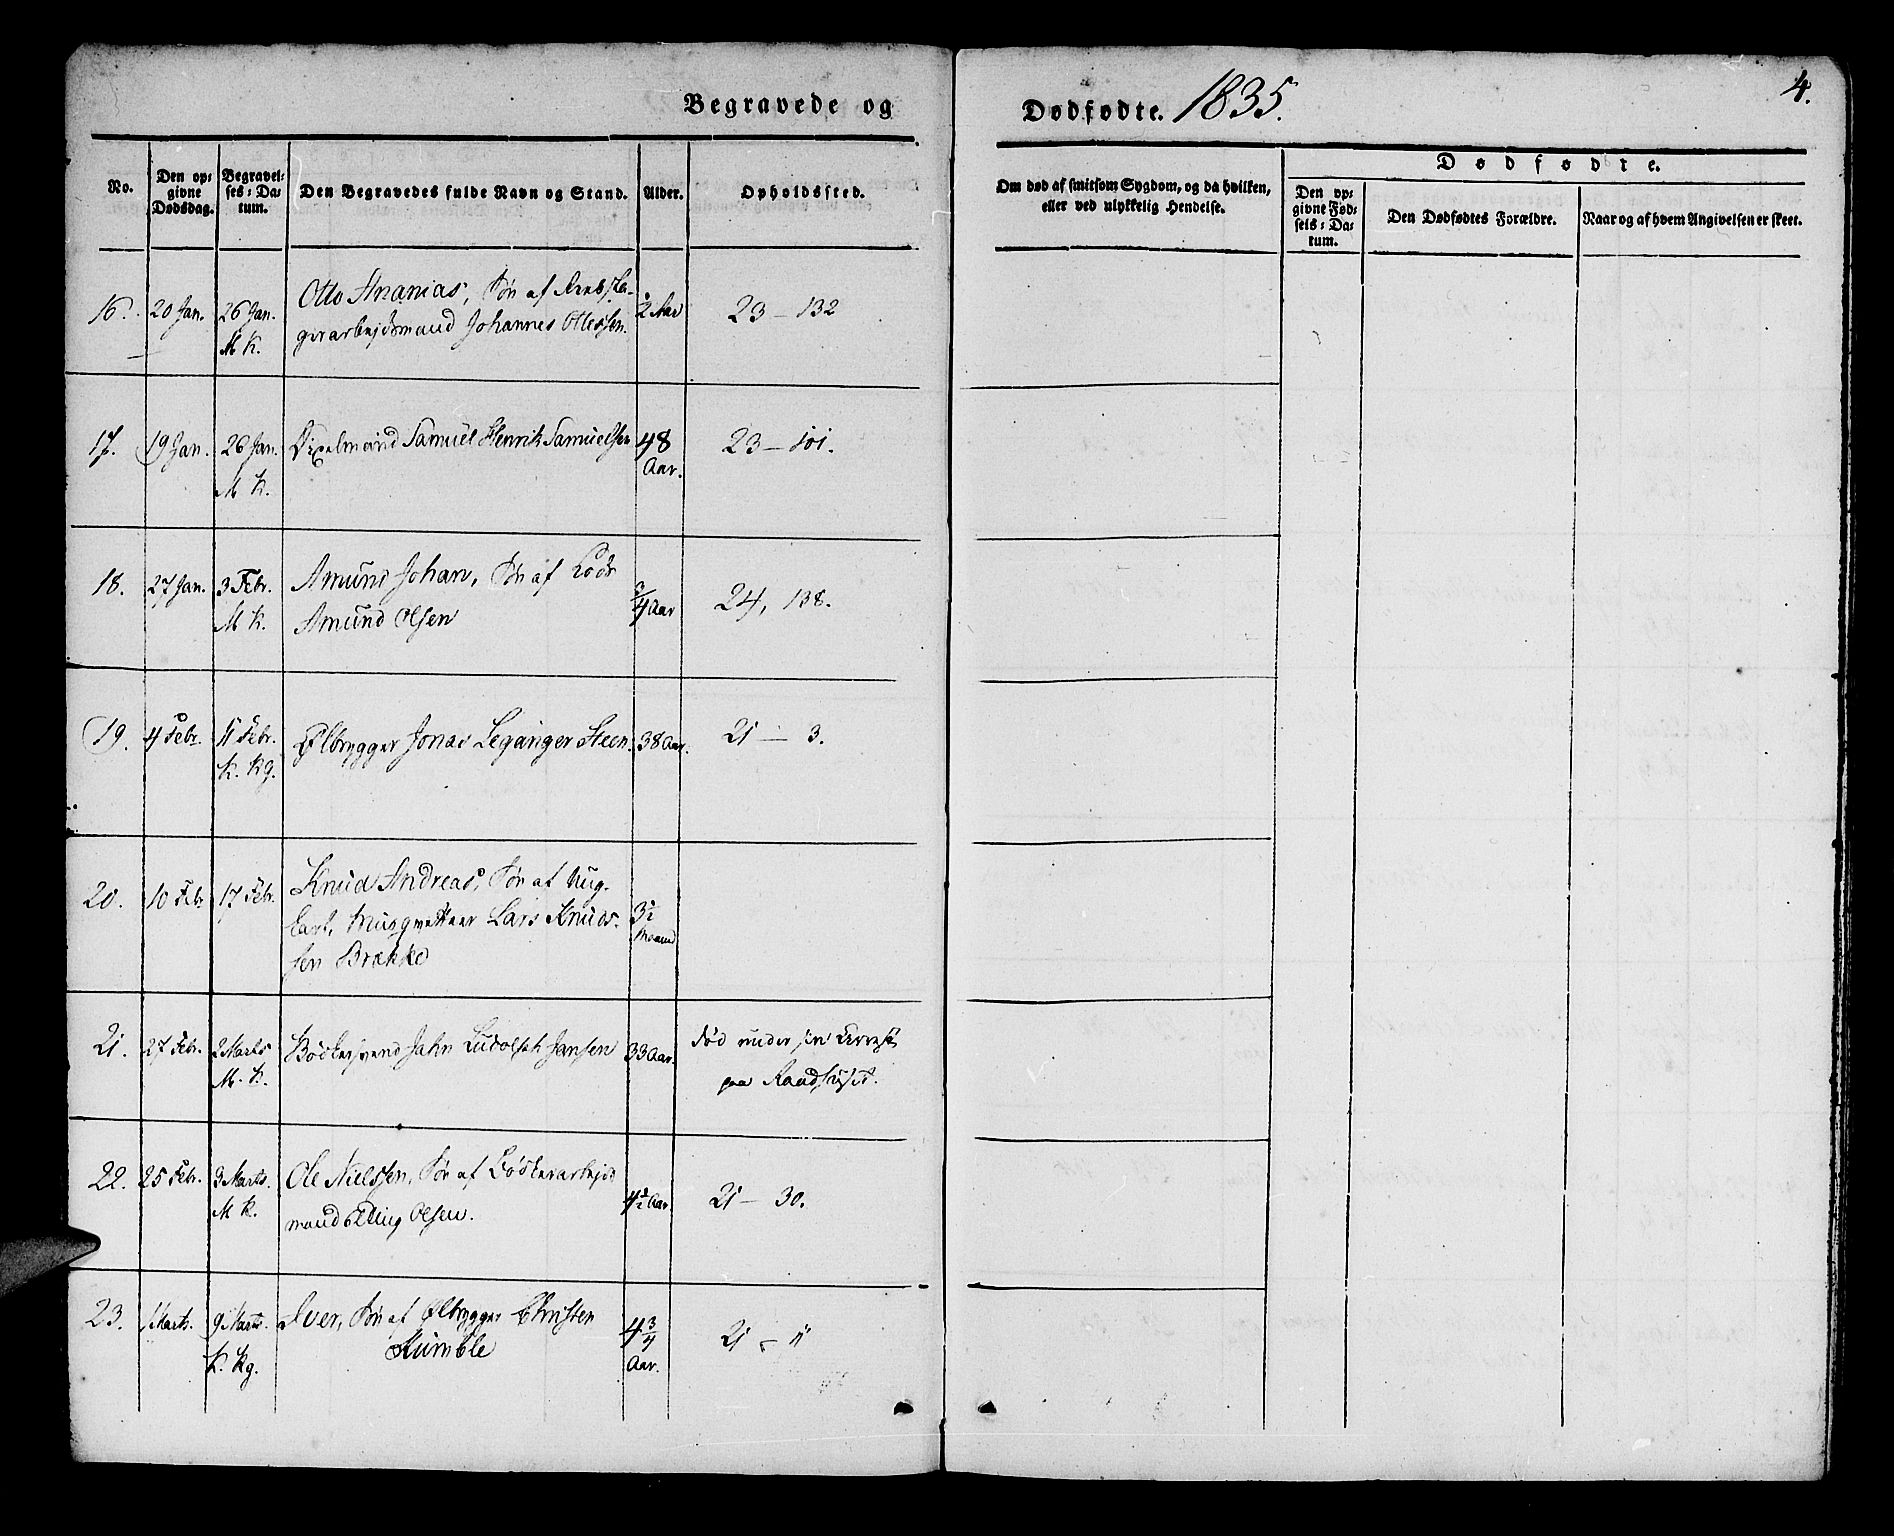 Begravede og
Dødfødte. 1835.
4.
No.
Den op-
givne
Dødsdag.
Begravel-
ses-Da-
tum.
Den Begravedes fulde Navn og Stand.
Alder.
Opholdssted.
Om død af smitsom Sygdom, og da hvilken,
eller ved ulykkelig Hendelse.
Dødfødte.
Den op-
givne Fød-
sels-Da-
tum.
Den Dødfødtes Forældre.
Naar og af hvem Angivelsen er skeet.
16. 20 Jan. 26 Jan. M K.
Otto Ananias, Søn af
arbejdsmand Johannes Ottessen.
2 Aar
23 — 132
17. 19 Jan. 26 Jan. M K.
Samuel Henrik Samuelsen
48 Aar.
23 — 101.
18. 27 Jan. 3 Febr. M K.
Amund Johan, Søn af Lods
Amund Olsen
3/4 Aar
24, 138.
19. 4 Febr. 11 Febr. K. Kg.
Ølbrygger Jonas Leganger Steen.
38 Aar.
21 — 3.
20. 10 Febr. 17 Febr.
Knud Andreas, Søn af Nug-
Musqvetteer Lars Knuds-
sen Brække
3 1/2 Maaned
21. 27 Febr. 2 Marts M. K.
Bødkersvend Jahn Ludolph Jansen
33 Aar.
død under sin Arrest
paa Raadhuset.
22. 25 Febr. 3 Marts. M K.
Ole Nielssen, Søn af Bødkerarbejds
mand Elling Olsen.
4 1/2 Aar
21 — 30.
23. 1 Marts. 9 Marts. K. Kg.
Iver, Søn af Ølbrygger Christen
Kumble
4 3/4 Aar.
21 — 11